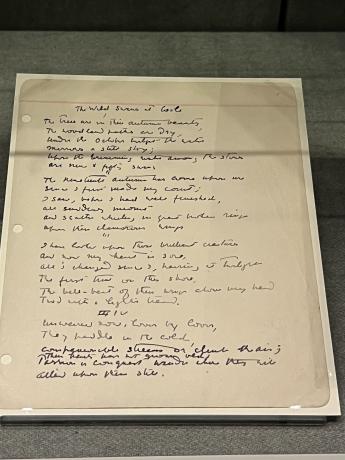 The Wild Swans at Coole
The trees are in their autumn beauty,
The woodland paths are dry,
Under the October twilight the water
mirrors a still sky;
Upon the brimming water among the stones
are nine & fifty swans
II
The nineteenth autumn has come upon me
Since I first made my count;
I saw, before I had well finished,
all suddenly mount
and scatter wheeling in great broken rings
upon their clamorous wings
III
I have looked upon those brilliant creatures
and now my heart is sore,
all's changed since I, hearing at twilight
The first time on this shore,
The bell-beat of their wings above my head
Trod with a lighter tread.
IV
Unwearied now, lover by lover,
They paddle in the cold,
Companionable streams or climb the air;
Their hearts have not grown cold
Passion or conquest, wander where they will
attend upon them still.